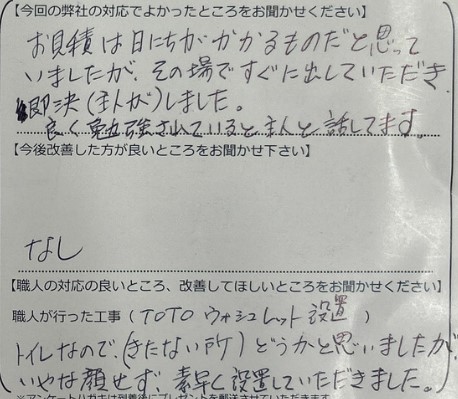 【今回の弊社の対応でよかったところをお聞かせください】
お見積は日にちがかかるものだと思って
いましたが、その場ですぐに出していただき、
即決(主人が)しました。
良く勉強されていると主人と話してます。
【今後改善した方が良いところをお聞かせ下さい】
なし
【職人の対応の良いところ、改善してほしいところをお聞かせください】
職人が行った工事(TOTO ウォシュレット設置)
トイレなので、(きたない所)どうかと思いましたが、
いやな顔せず、素早く設置していただきました。
※アンケートハガキは到着後にプレゼントを郵送させていただきます